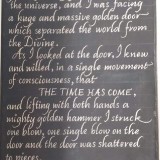 the universe, and I was facing
a huge and massive golden door
which separated the world from
the Divine.
As I looked at the door, I knew
and willed, in a single movement
of consciousness, that
THE TIME HAS COME,
and lifting with both hands a
mighty golden hammer I struck
one blow, one single blow on the
door and the door was shattered
to pieces.